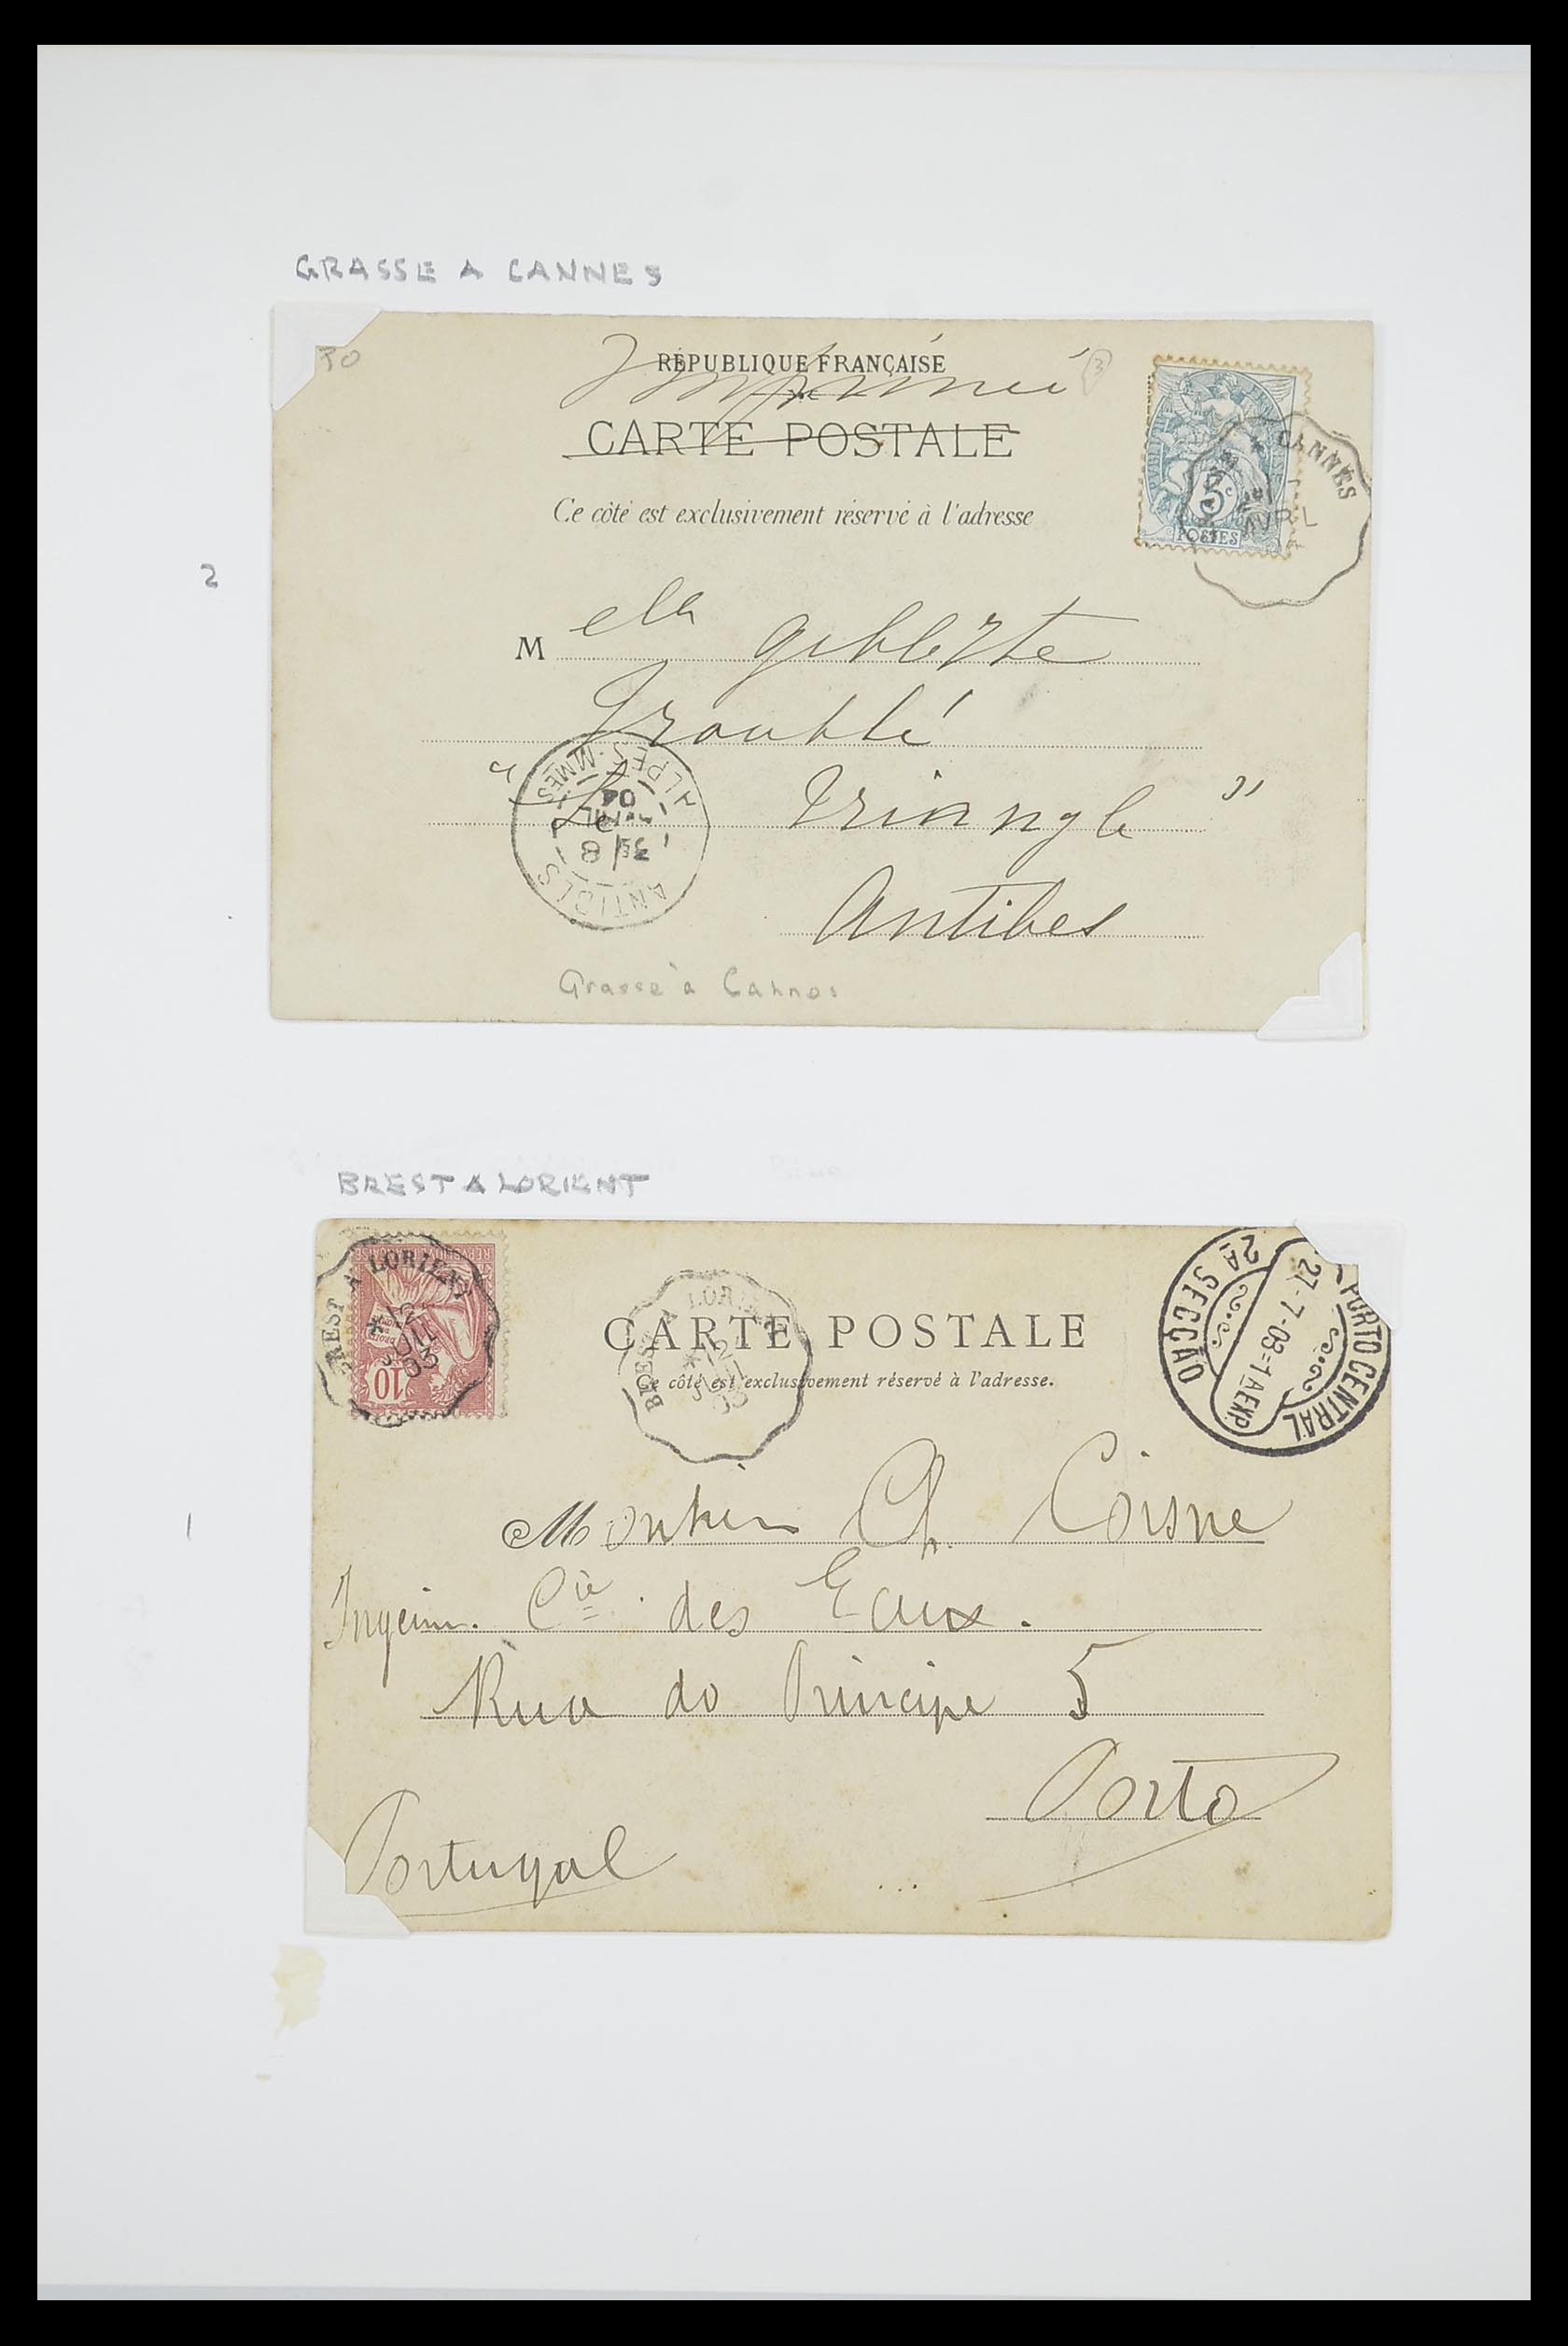 GRASSE A CANNES
30
RÉPUBLIQUE FRANÇAISE
Imprimé
3
CARTE POSTALE
Ce côté est exclusivement réservé à l'adresse
5c
POSTES
A CANNES
AVRIL
2
M elle giblerte
Troublé
" Le Triangle "
Antibes
ANTIBES
8
AVRIL
04
ALPES-MMES
Grasse à Cannes
BREST A LORIENT
BREST A LORIENT
12
JUIL
03
10
CARTE POSTALE
Ce côté est exclusivement réservé à l'adresse.
BREST A LORIENT
12
03
PORTO CENTRAL
27-7-03=1A EXP.
2A SECCÃO
1
Monsieur Ch. Coisne
Ingein. Cie des Eaux.
Rua do Principe 5
Porto
Portugal